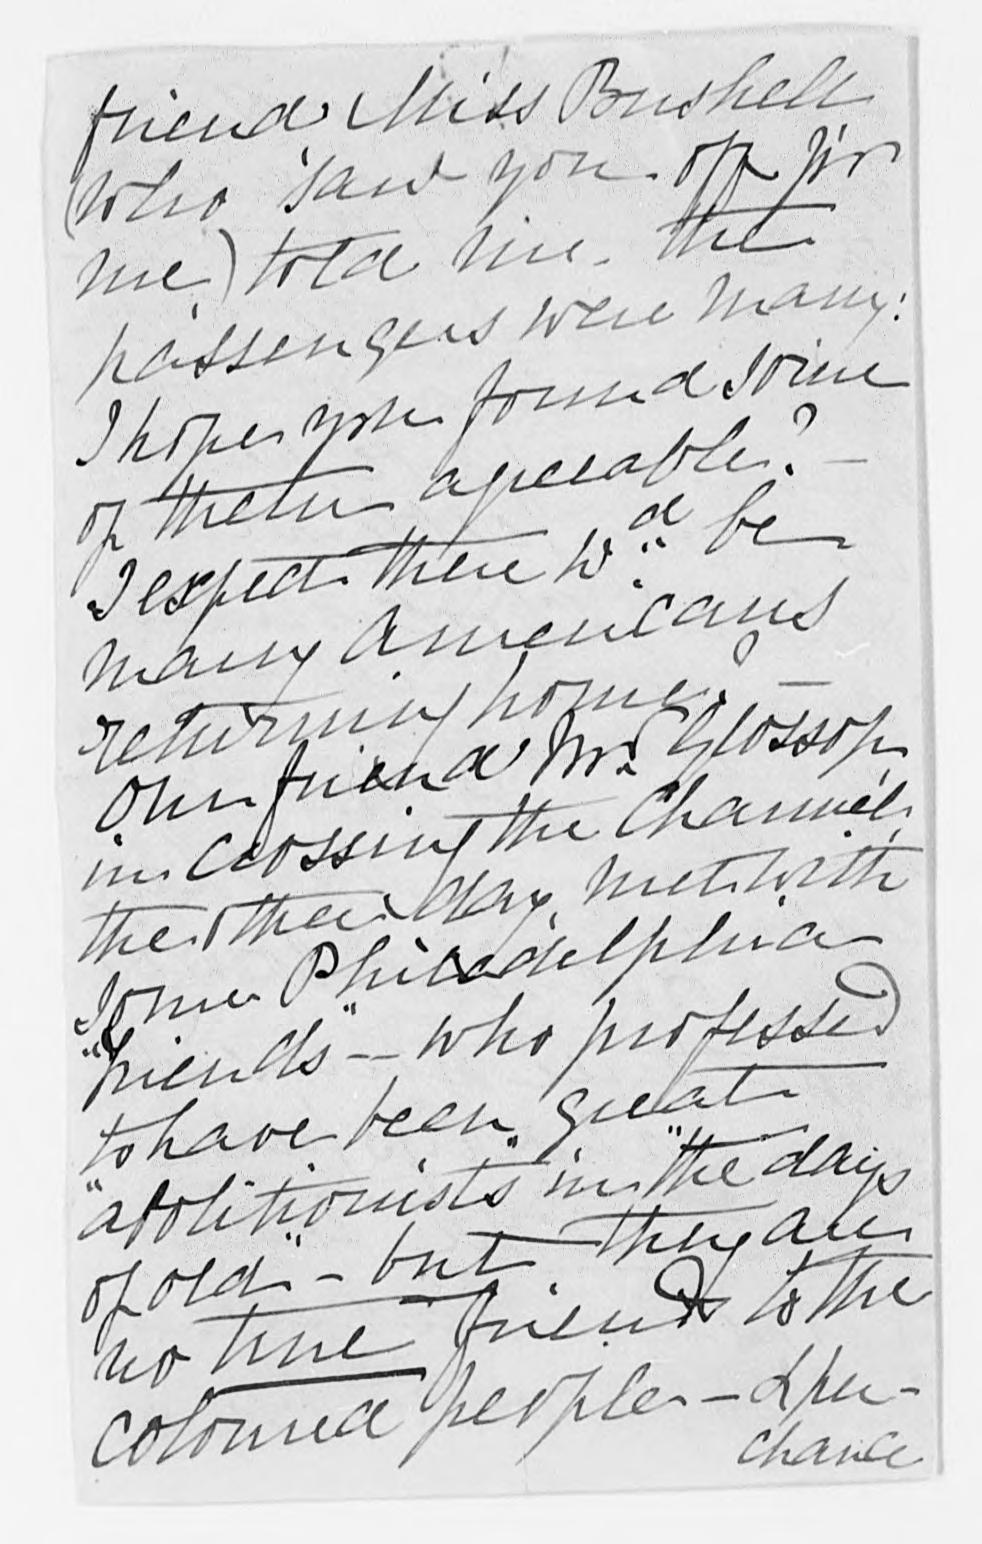 friend Miss Bushell
(who saw you off for
me) told me the
passengers were many:
I hope you found some
of them agreeable? –
I expect there wd. be
many Americans
returning home? –
Our friend Mrs Glossop
in crossing the Channel,
the other day, met with
some Philadelphia
"friends" – who professed
to have been great
"abolitionists" in "the days
of old" – but they are
no true friends to the
coloured people – & per-
chance